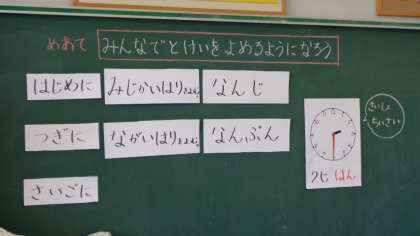 めあて みんなでとけいをよめるようになろう
はじめに みじかいはりをよむ なんじ
つぎに ながいはりをよむ なんぷん
さいごに
2じ はん
ちいさい